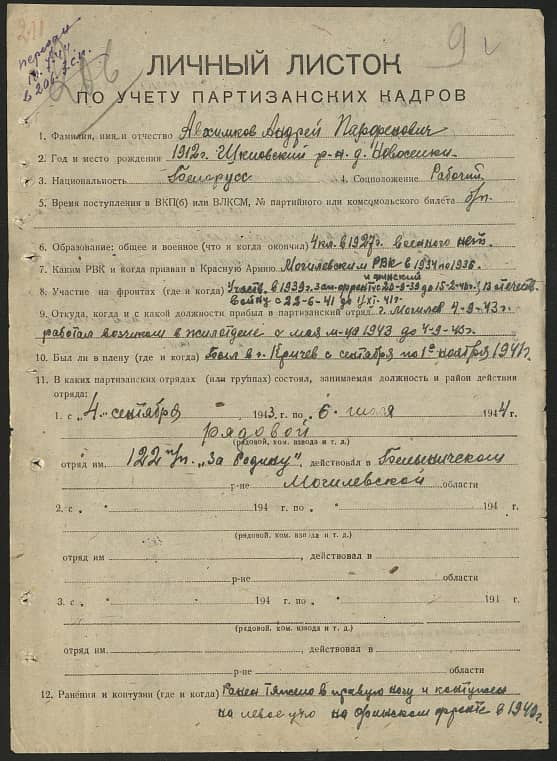 211
передан
10.7.44
в 206 з.с.п.
206
9г
ЛИЧНЫЙ ЛИСТОК
ПО УЧЕТУ ПАРТИЗАНСКИХ КАДРОВ
1. Фамилия, имя и отчество Авхимков Андрей Парфенович
2. Год и место рождения 1912г. Шкловский р-н д. Новоселки
3. Национальность Белорусс 4. Соцположение Рабочий
5. Время поступления в ВКП(б) или ВЛКСМ, № партийного или комсомольского билета б/п.
6. Образование: общее и военное (что и когда окончил) 4 кл. в 1927г. военного нет.
7. Каким РВК и когда призван в Красную Армию Могилевским РВК в 1934 по 1936.
и финский
8. Участие на фронтах (где и когда) Участв. в 1939г. зап. фронте с 20-9-39 до 15-2-40г. В отечеств.
войну с 23-6-41 до 1/XI-41г.
9. Откуда, когда и с какой должности прибыл в партизанский отряд г. Могилев 4-9-43г.
работал возчиком в жилотделе с мая м-ца 1943 до 4-9-43г.
10. Был ли в плену (где и когда) Был в г. Кричев с сентября по 1е ноября 1941г.
11. В каких партизанских отрядах (или группах) состоял, занимаемая должность и район действия
отряда:
1. с „4„ сентября 1943 г. по „6„ июля 1944 г.
рядовой
(рядовой, ком. взвода и т. д.)
отряд им. 122 п/п. „За Родину", действовал в Белыничском
р-не Могилевской области
2. с „ " 194 г. по „ " 194 г.
(рядовой, ком. взвода и т. д.)
отряд им. действовал в
р-не области
3. с „ " 194 г. по „ " 194 г.
(рядовой, ком. взвода и т. д.)
отряд им. действовал в
р-не области
12. Ранения и контузии (где и когда) Ранен тяжело в правую ногу и контужен
на левое ухо на финском фронте в 1940г.